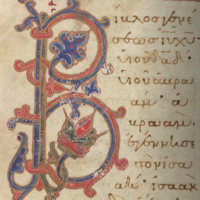 Βίβλος γενε
σεως ιυ χυ
υιου δαδ
υιου αβρα
αμ· α
βρααμ
εγεννησε
τον ισα
ακ· ισαακ